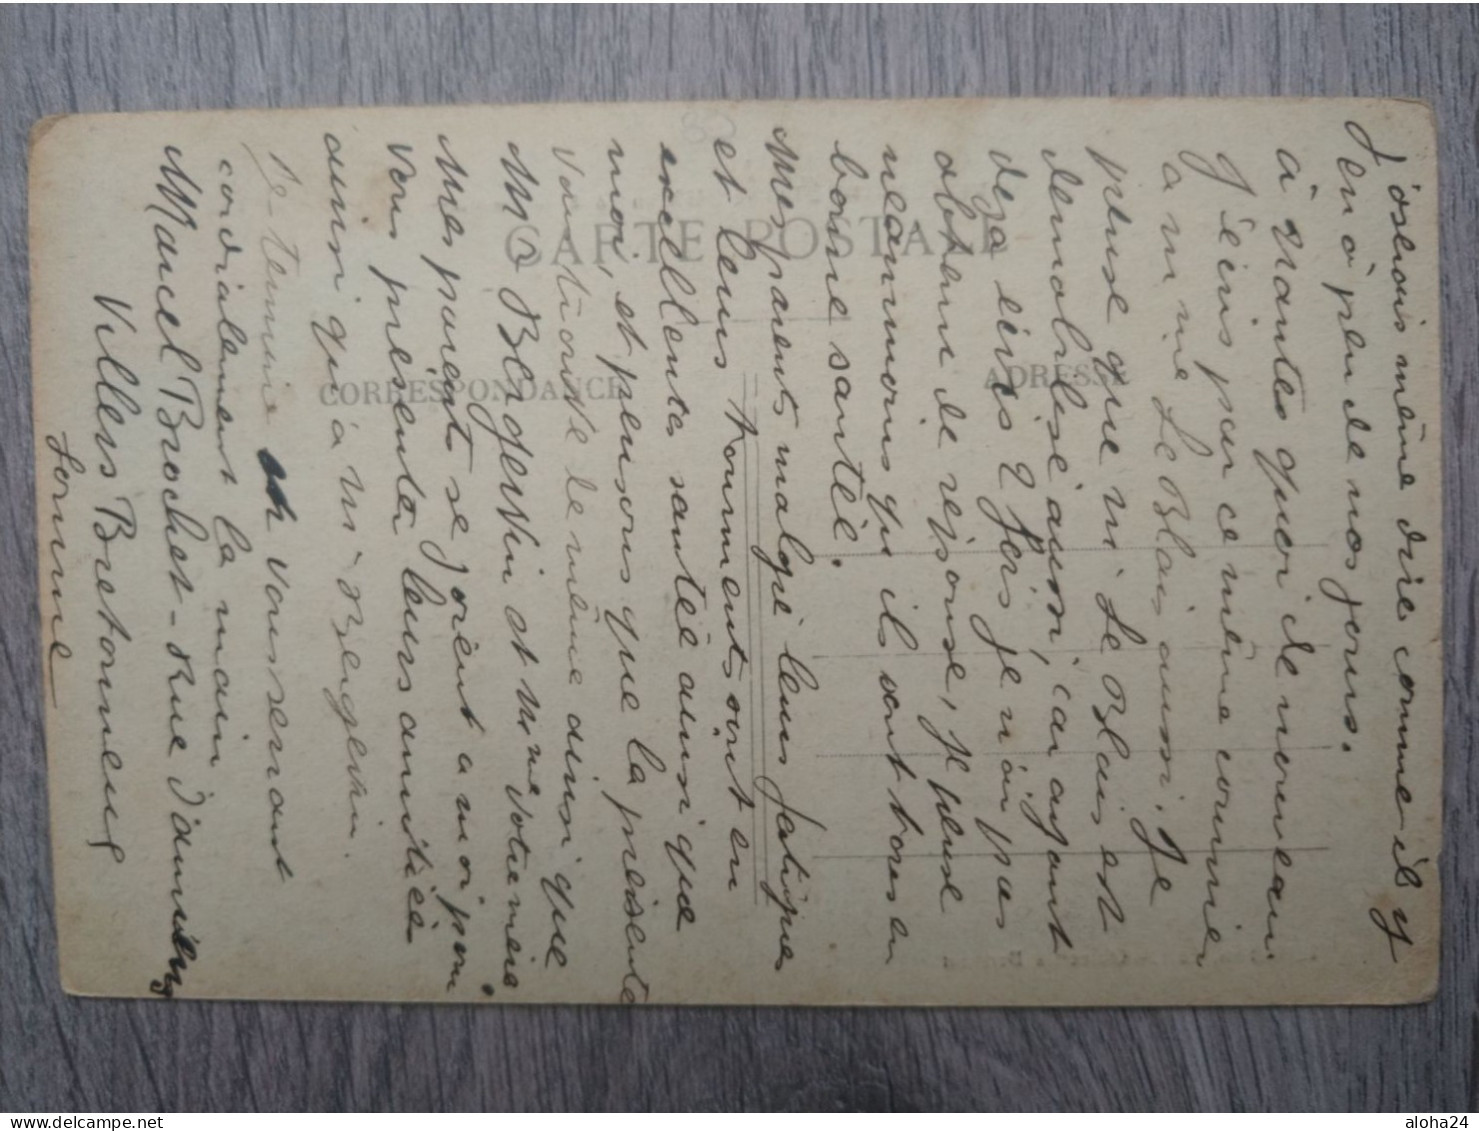 J'oserais même dire comme il y
en a peu de nos jours.
à Nantes quoi de nouveau
J'écris par ce même courrier
a M me Le Blais aussi. Je
pense que M. Le Blais est
demobilisé aussi, car ayant
deja ecris 2 fois je n'ai pas
obtenu de reponse, je pense
néanmoins qu'ils sont tous en
bonne santé.
Mes parents malgré leurs fatigues
et leurs tourments sont en
excellente santé aussi que
moi, et pensons que la présente
vous trouve le même ainsi que
Mr Bergevin et Mme votre mère
Mes parents se joient a moi pour
vous présenter leurs amitiés
ainsi qu'à M. Bergevin.
Je termine en vous serrant
cordialement la main
Marcel Brochet - Rue d'aumeny
Villers Bretonneux
Somme
CARTE POSTALE
CORRESPONDANCE
ADRESSE
aloha24